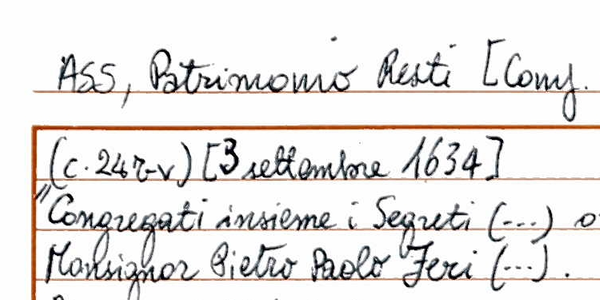 ASS, Patrimonio Resti [Cong.
(c. 24r-v) [3 settembre 1634]
"Congregati insieme i Segreti (...)
Monsignor Pietro Paolo Feri (...).